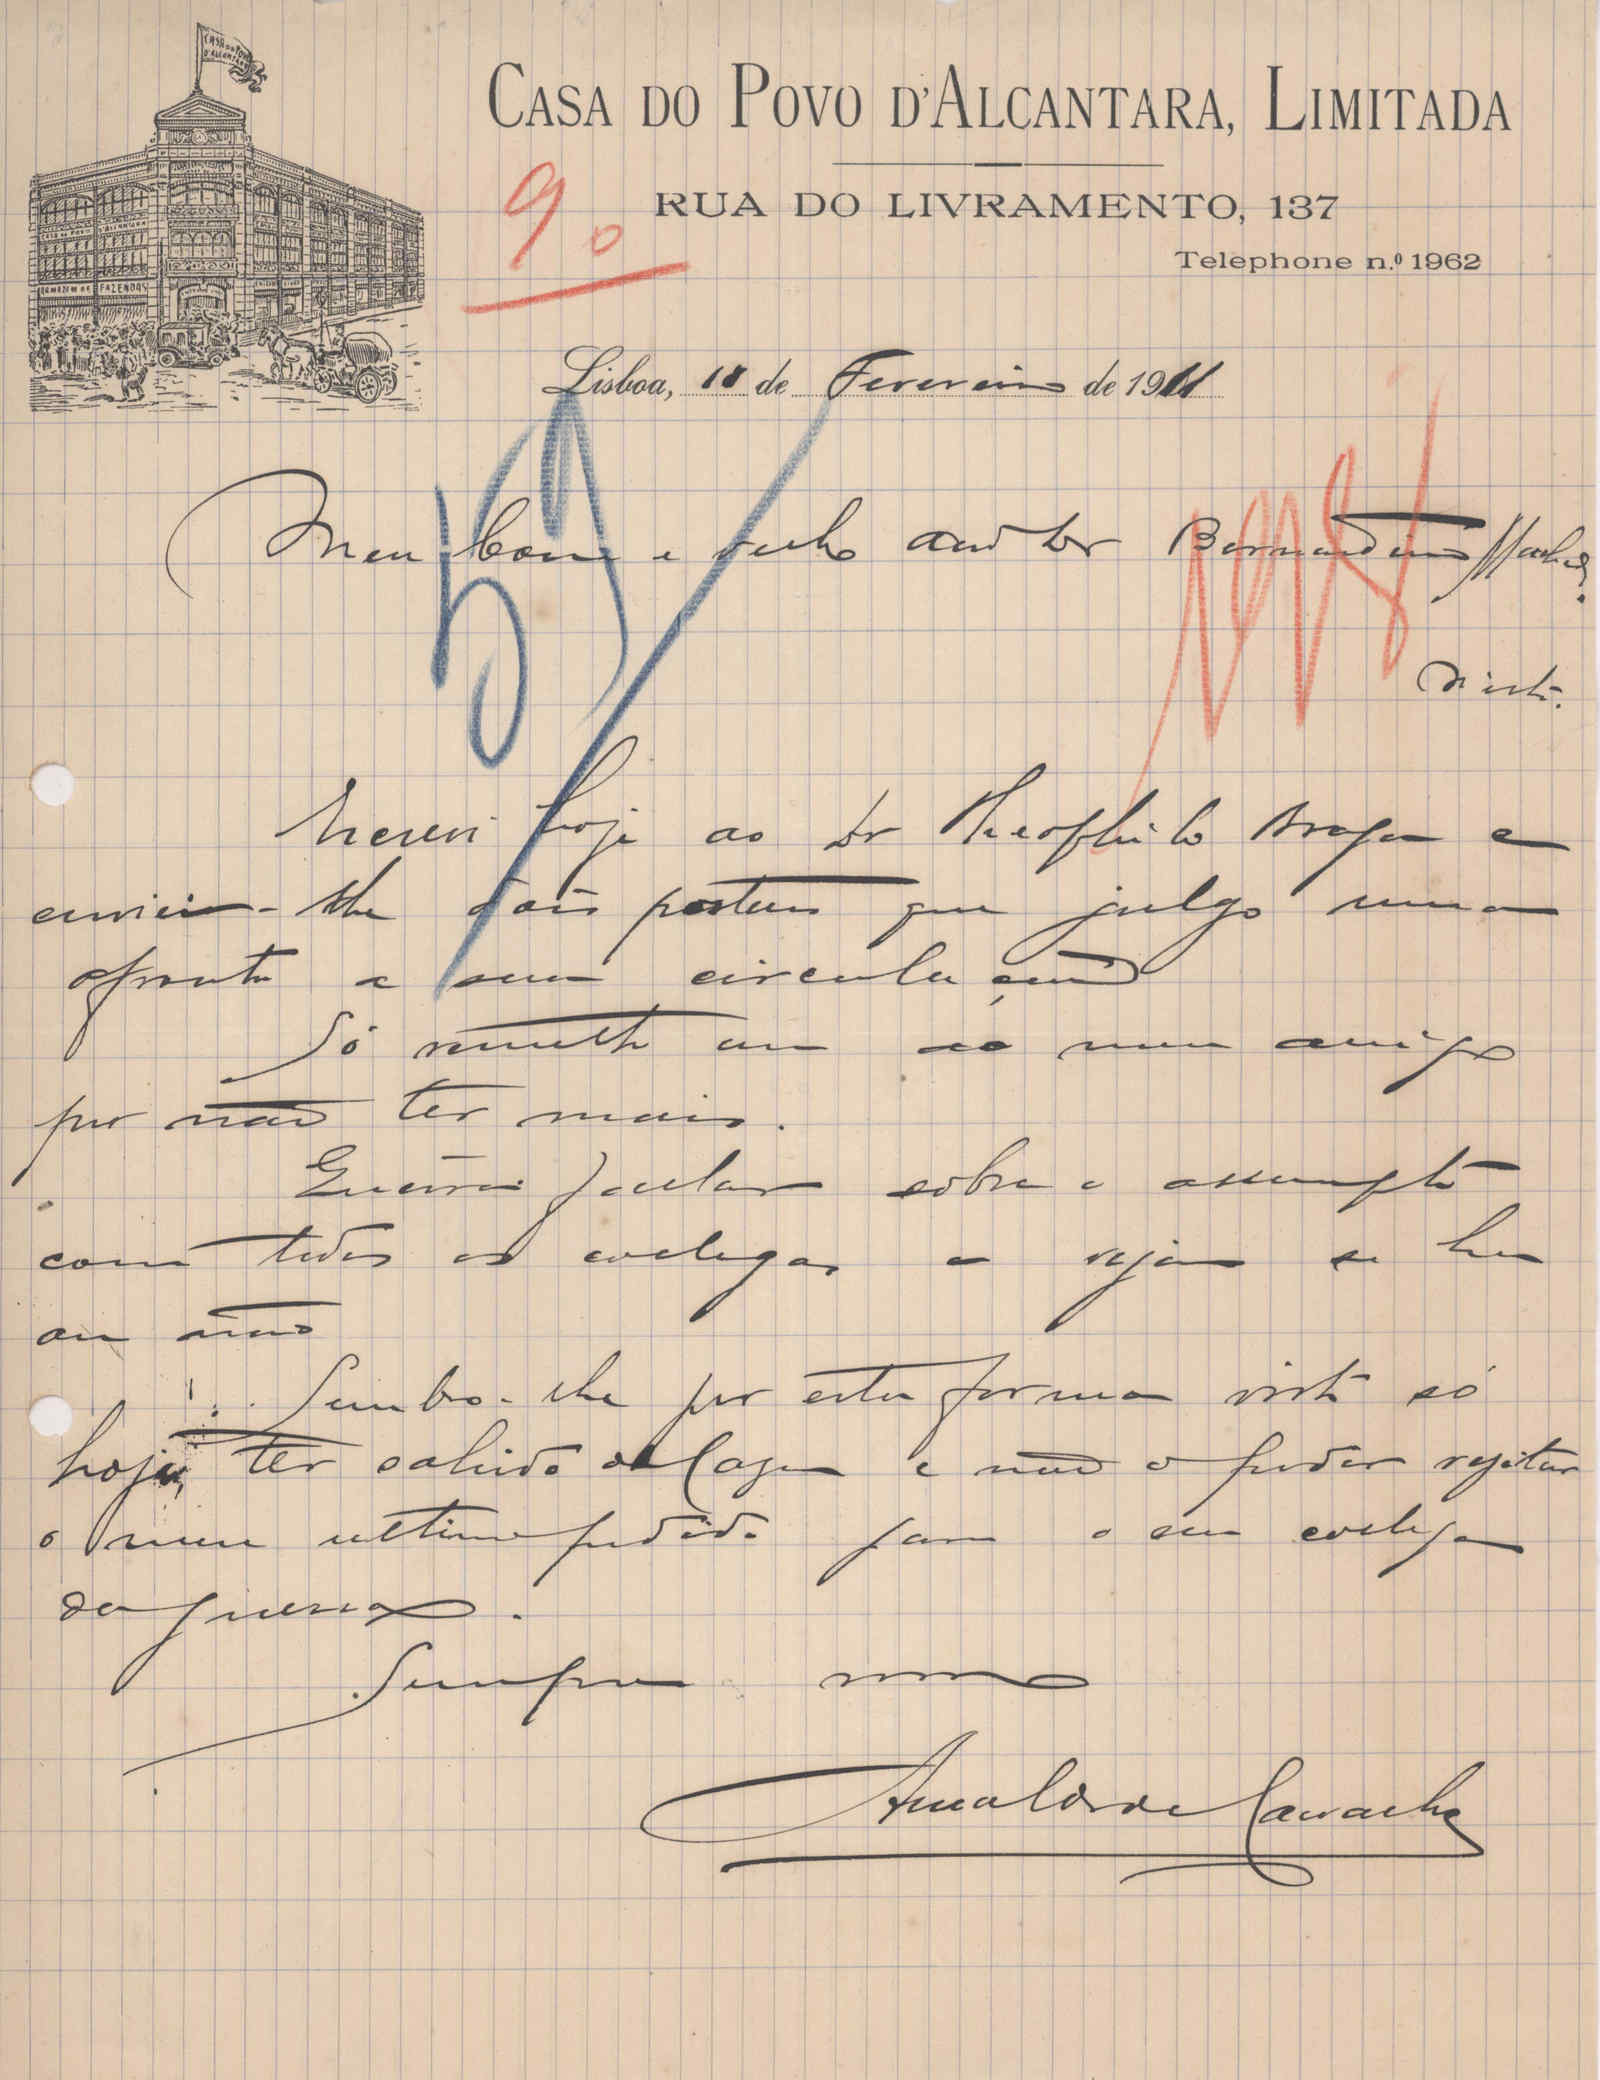 CASA DO POVO D'ALCANTARA
CASA DO POVO D'ALCANTARA, LIMITADA
RUA DO LIVRAMENTO, 137
Telephone n.º 1962
9º
CASA DO POVO D'ALCANTARA
ARMAZEM DE FAZENDAS
Lisboa, 18 de Fevereiro de 1911
59
Meu bom e velho am.º Dr Bernardino Machado
Escrevi hoje ao Dr Theophilo Braga e
enviei-lhe dois postaes que julgo uma
afronta a sua circulação
Só remetto um ao meu amigo
por não ter mais.
Queira fallar sobre o assumpto
com todos os collegas e vejam se ha
ou não
Lembro-lhe por esta forma visto só
hoje, ter sahido de Casa e não o poder
o meu ultimo pedido para o seu collega
da guerra.
Sempre
Arnaldo de Carvalho